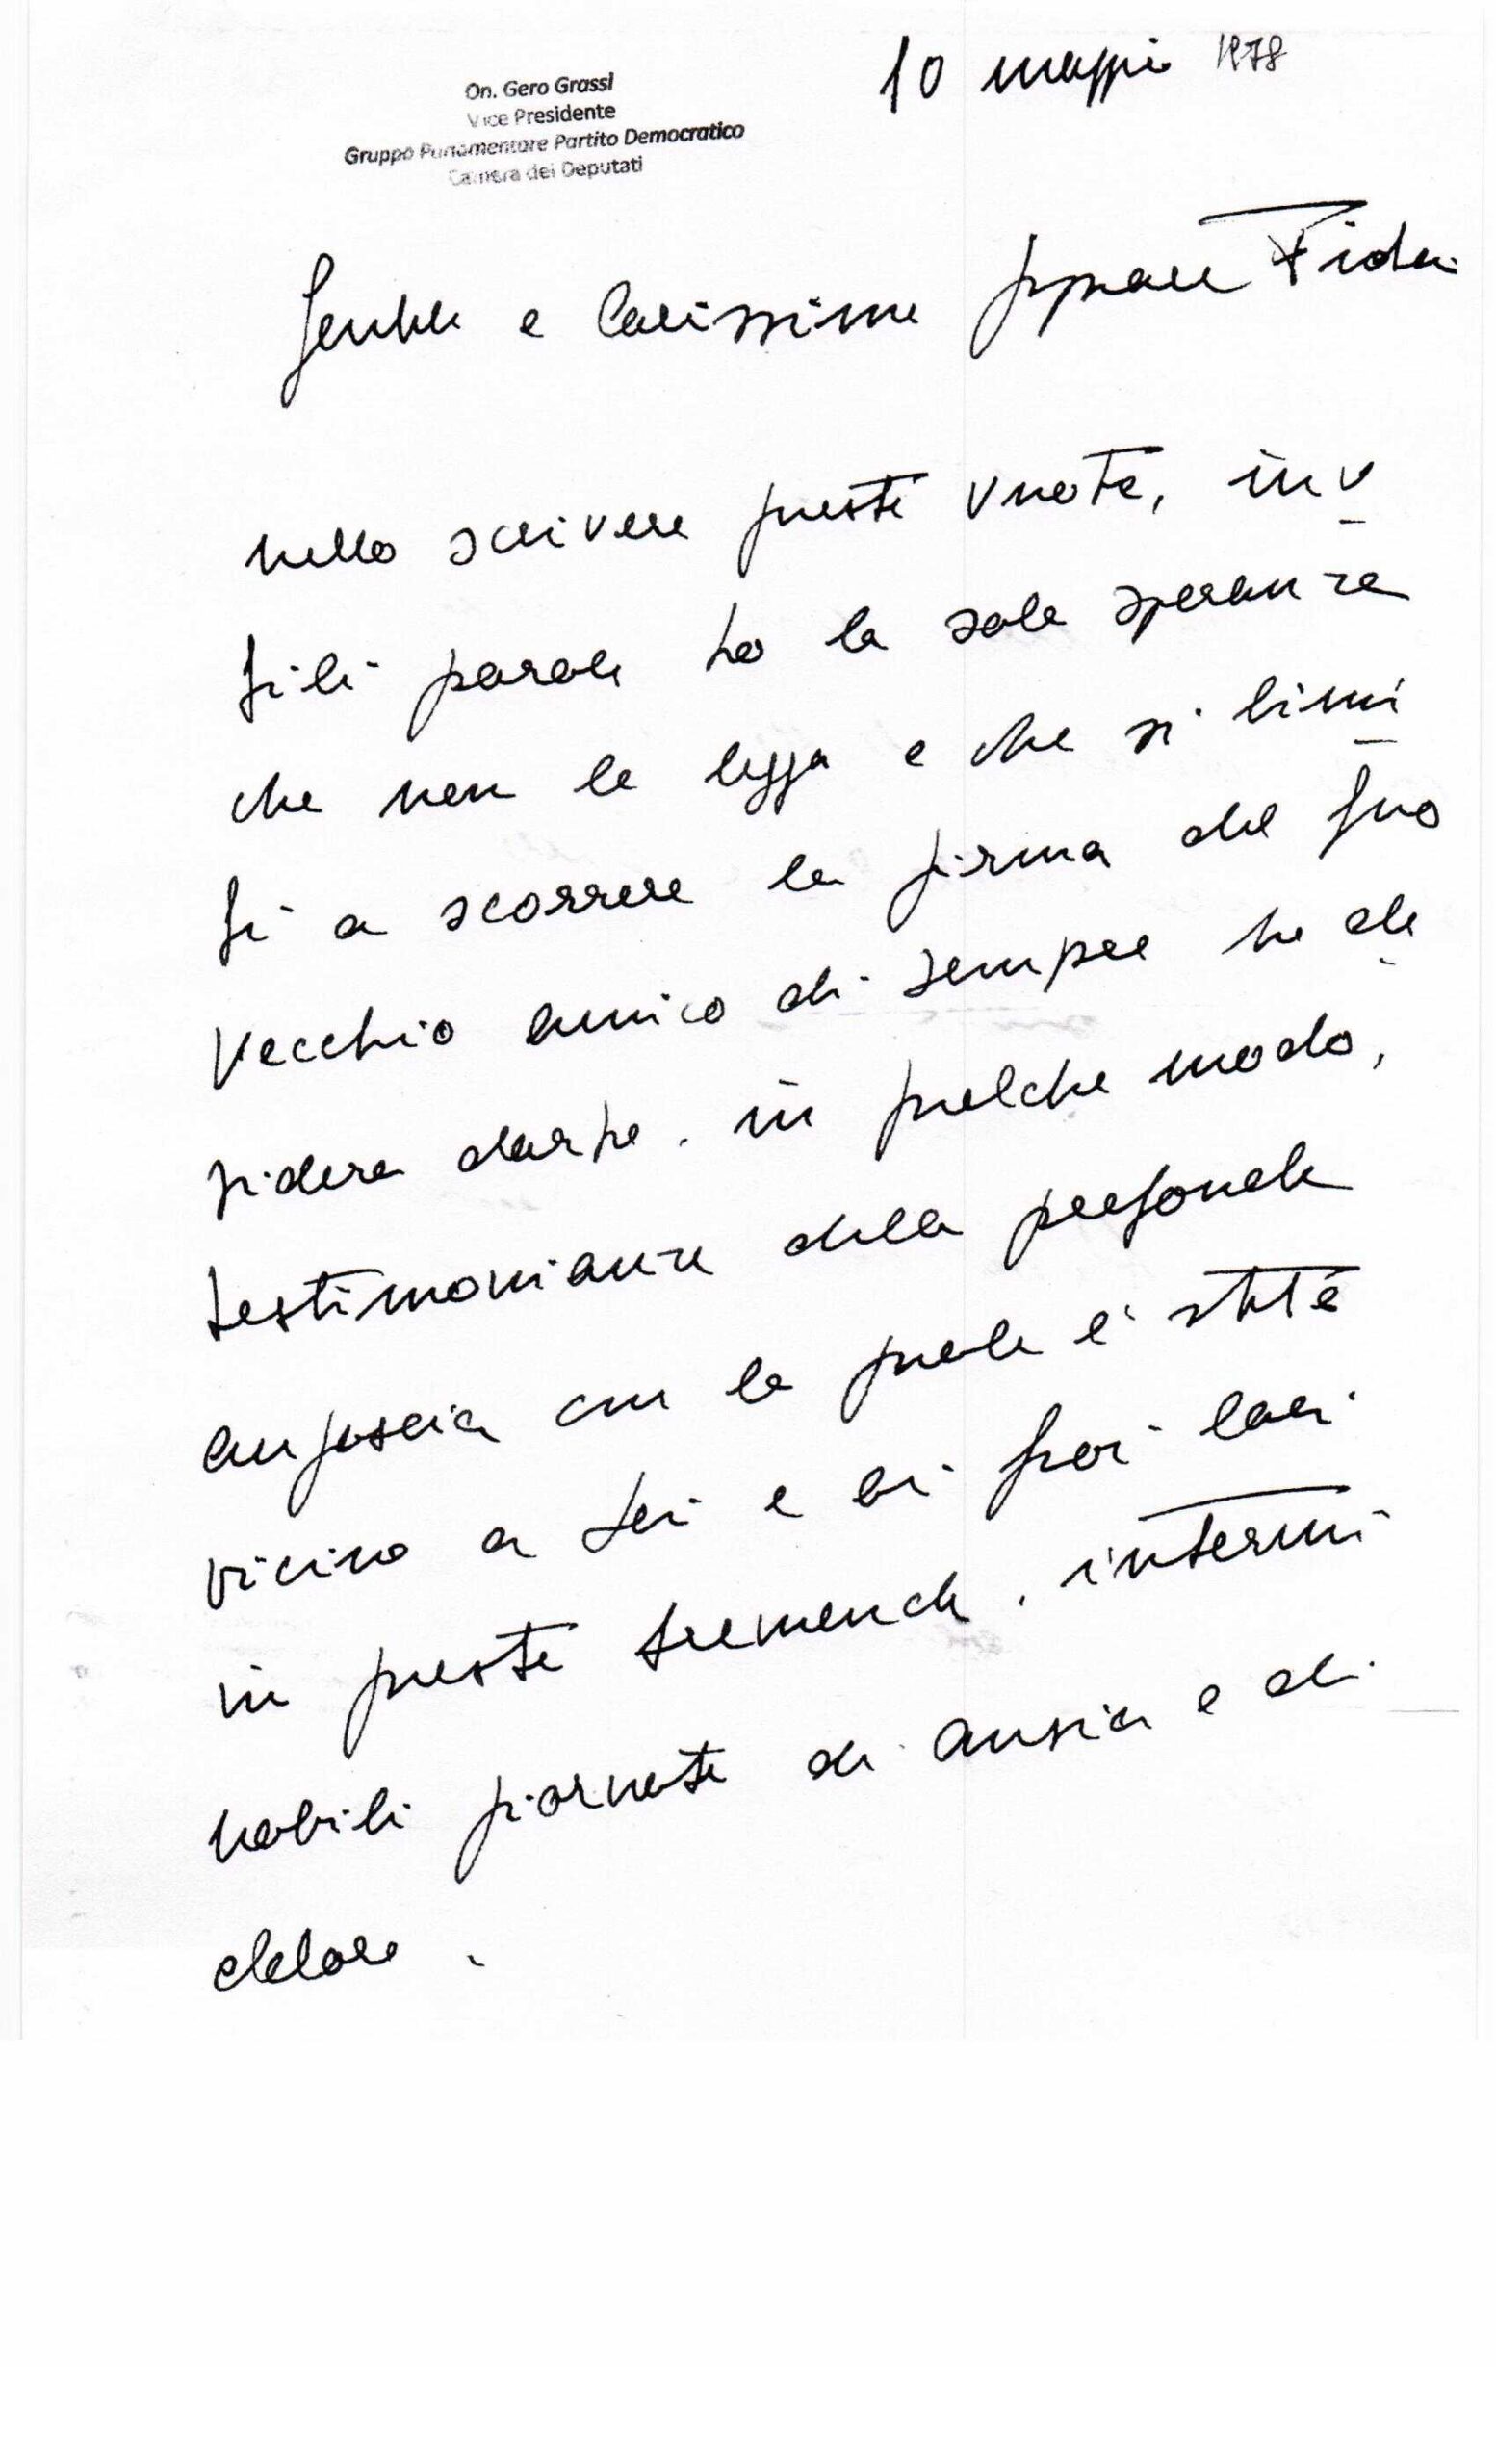 10 maggio 1978
On. Gero Grassi
Vice Presidente
Gruppo Parlamentare Partito Democratico
Camera dei Deputati
Gentile e Carissima Signora Fida
nello scrivere queste vuote, inu
tili parole ho la sola speranza
che non le legga e che si limi
ti a scorrere la firma del Suo
vecchio amico di sempre che de
sidera darle, in qualche modo,
testimonianza della personale
angoscia con la quale è stato
vicino a Lei e ai suoi cari
in queste tremende, intermi
nabili giornate di ansia e di
dolore.